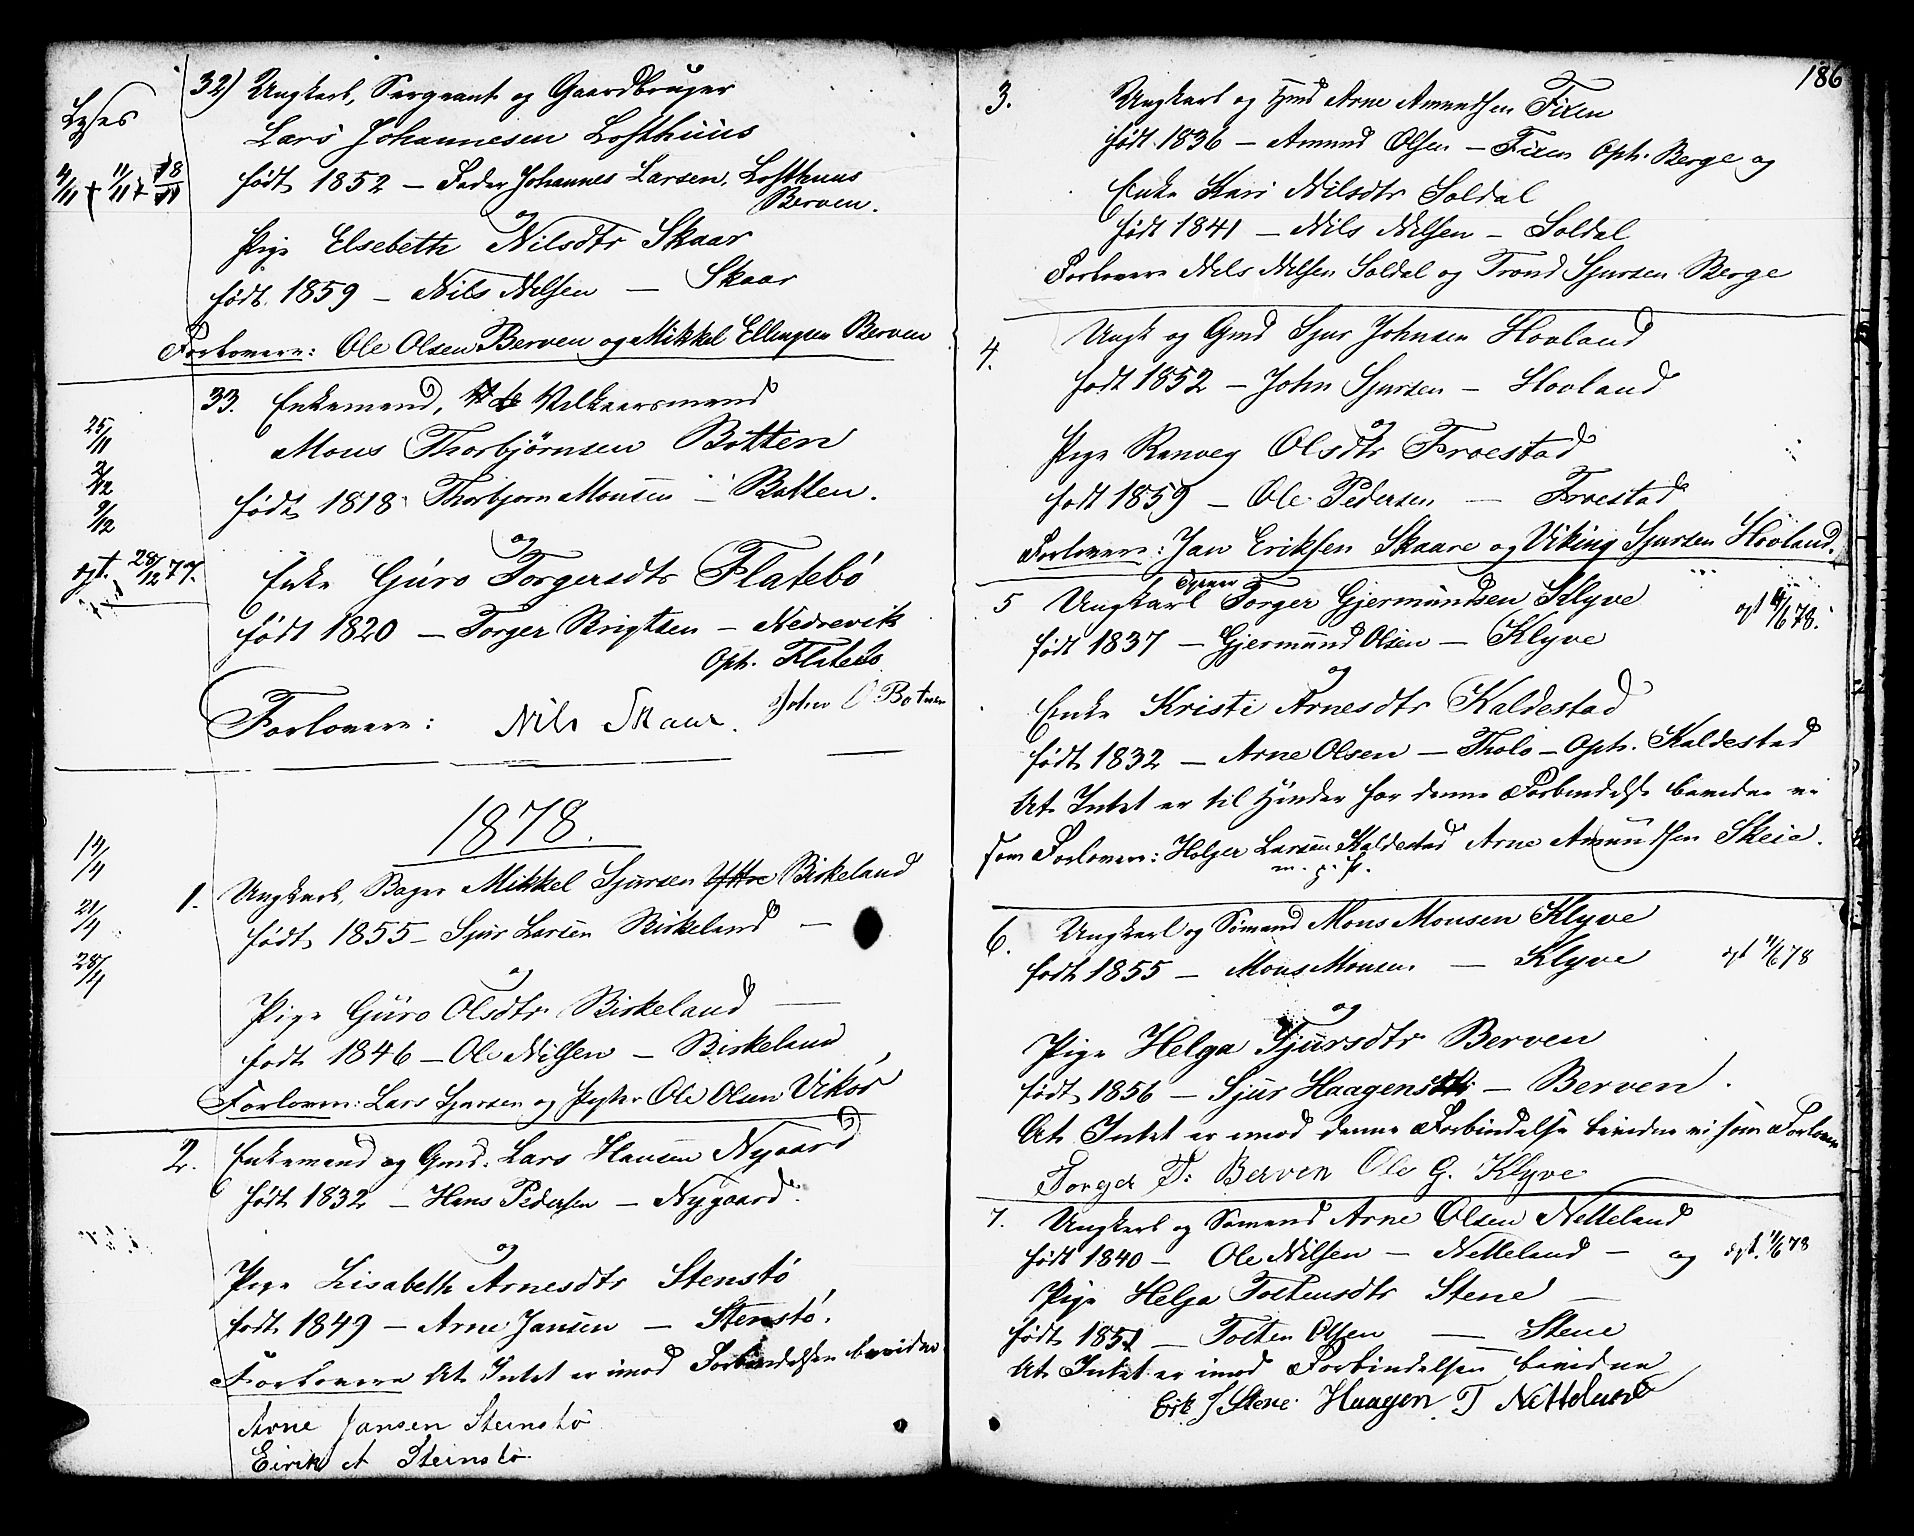 Lyses
4/11 + 11/11 + 18/11
32) Ungkarl, Sergeant og Gaardbruger
Lars Johannesen Lofthuus
født 1852 – Fader Johannes Larsen, Lofthuus
Berven.
og
Pige Elsebeth Nilsdtr Skaar
født 1859 – Nils Nilsen – Skaar
Forlovere: Ole Olsen Berven og Mikkel Ellingsen Berven
25/11
2/12
9/12
egt. 28/12 77.
33. Enkemand, Vilkaarsmand
Mons Thorbjørnsen Botten
født 1818 Thorbjørn Monsen – Botten.
og
Enke Guro Torgersdtr Flatebø
født 1820 – Torger Brigtsen – Nedrevik
Oph. Flatebø
Forlovere: Nils Skaar. John O Botnen
1878.
14/4
21/4
28/4
1. Ungkarl, Bager Mikkel Sjursen Birkeland
født 1855 – Sjur Larsen Birkeland –
og
Pige Guro Olsdtr Birkeland
født 1846 – Ole Nilsen – Birkeland
Forlovere: Lars Sjursen og Ole Olsen Vikør
2. Enkemand og Gmd. Lars Hansen Nygaard
født 1832 – Hans Pedersen – Nygaard.
og
Pige Lisabeth Arnesdtr Stenstø
født 1849 – Arne Jansen – Stenstø.
Forlovere At Intet er imod Forbindelsen bevidne
Arne Jansen Steinstø
Eirik A Steinstø
186
3. Ungkarl og Hmd Arne Amundsen Fixen
født 1836 – Amund Olsen – Fixen Oph. Berge og
Enke Kari Nilsdtr Soldal
født 1841 – Nils Nilsen – Soldal
Forlovere Nils Nilsen Soldal og Trond Sjursen Berge
4. Ungk og Gmd Sjur Johnsen Hovland
født 1852 – John Sjursen – Hovland
og
Pige Ranveg Olsdtr Froestad
født 1859 – Ole Pedersen – Froestad
Forlovere: Jan Eriksen Skaare og Viking Sjursen Hovland.
5 Ungkarl Torger Gjermundsen Klyve
egt 11/6 78.
født 1837 – Gjermund Olsen – Klyve
og
Enke Kristi Arnesdtr Kaldestad
født 1832 – Arne Olsen – Tholo – Oph. Kaldestad
At Intet er til Hinder for denne Forbindelse bevidne vi
som Forlovere: Holger Larsen Kaldestad Arne Amundsen Skeie.
m. p. P.
6. Ungkarl og Sømand Mons Monsen Klyve
født 1855 – Mons Monsen – Klyve egt 11/6 78
og
Pige Helga Sjursdtr Berven
født 1856 – Sjur Haagens – Berven.
At Intet er imod denne Forbindelse bevidne vi som Forlovere
Torger T. Berven Ole G. Klyve
7. Ungkarl og Sømand Arne Olsen Netteland
født 1840 – Ole Nilsen – Netteland – og egt. 11/6 78
Pige Helga Tostensdtr Stene –
født 1851 – Tosten Olsen – Stene
At Intet er imod Forbindelsen bevidne
Erik J Stene Haagen T Netteland